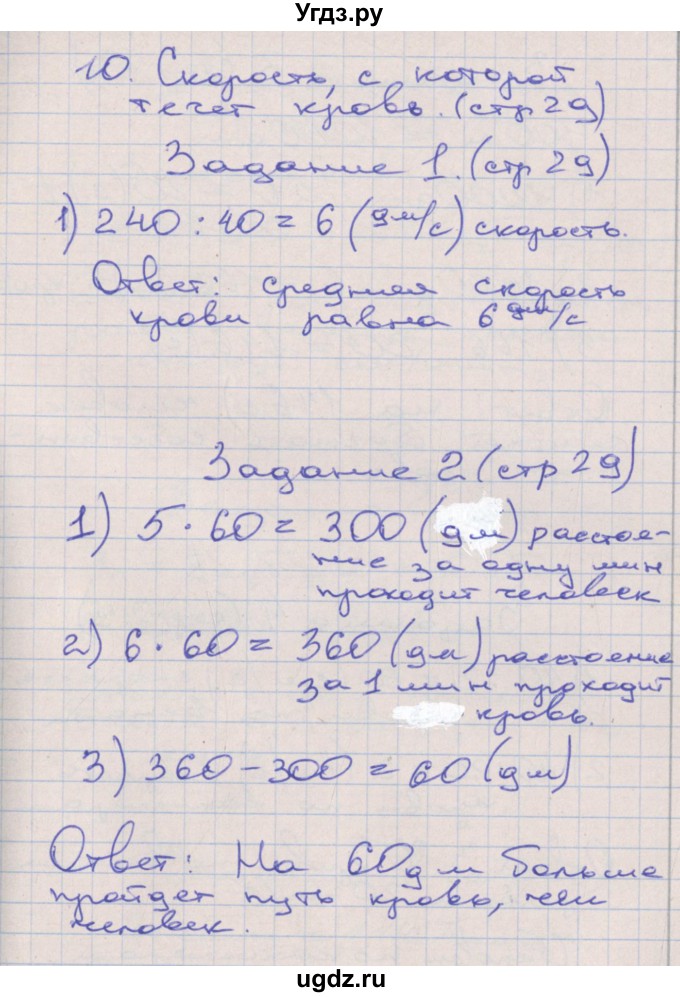 Угдз.ру
10. Скорость, с которой
течет кровь. (стр 29)
Задание 1. (стр 29)
1) 240 : 40 = 6 (дм/с) скорость.
Ответ: средняя скорость
крови равна 6 дм/с
Задание 2 (стр 29)
1) 5 · 60 = 300 (дм) расстоя-
ние за одну мин
проходит человек
2) 6 · 60 = 360 (дм) расстоение
за 1 мин проходит
кровь.
3) 360 - 300 = 60 (дм)
Ответ: На 60 дм больше
пройдет путь кровь, чем
человек.
ugdz.ru